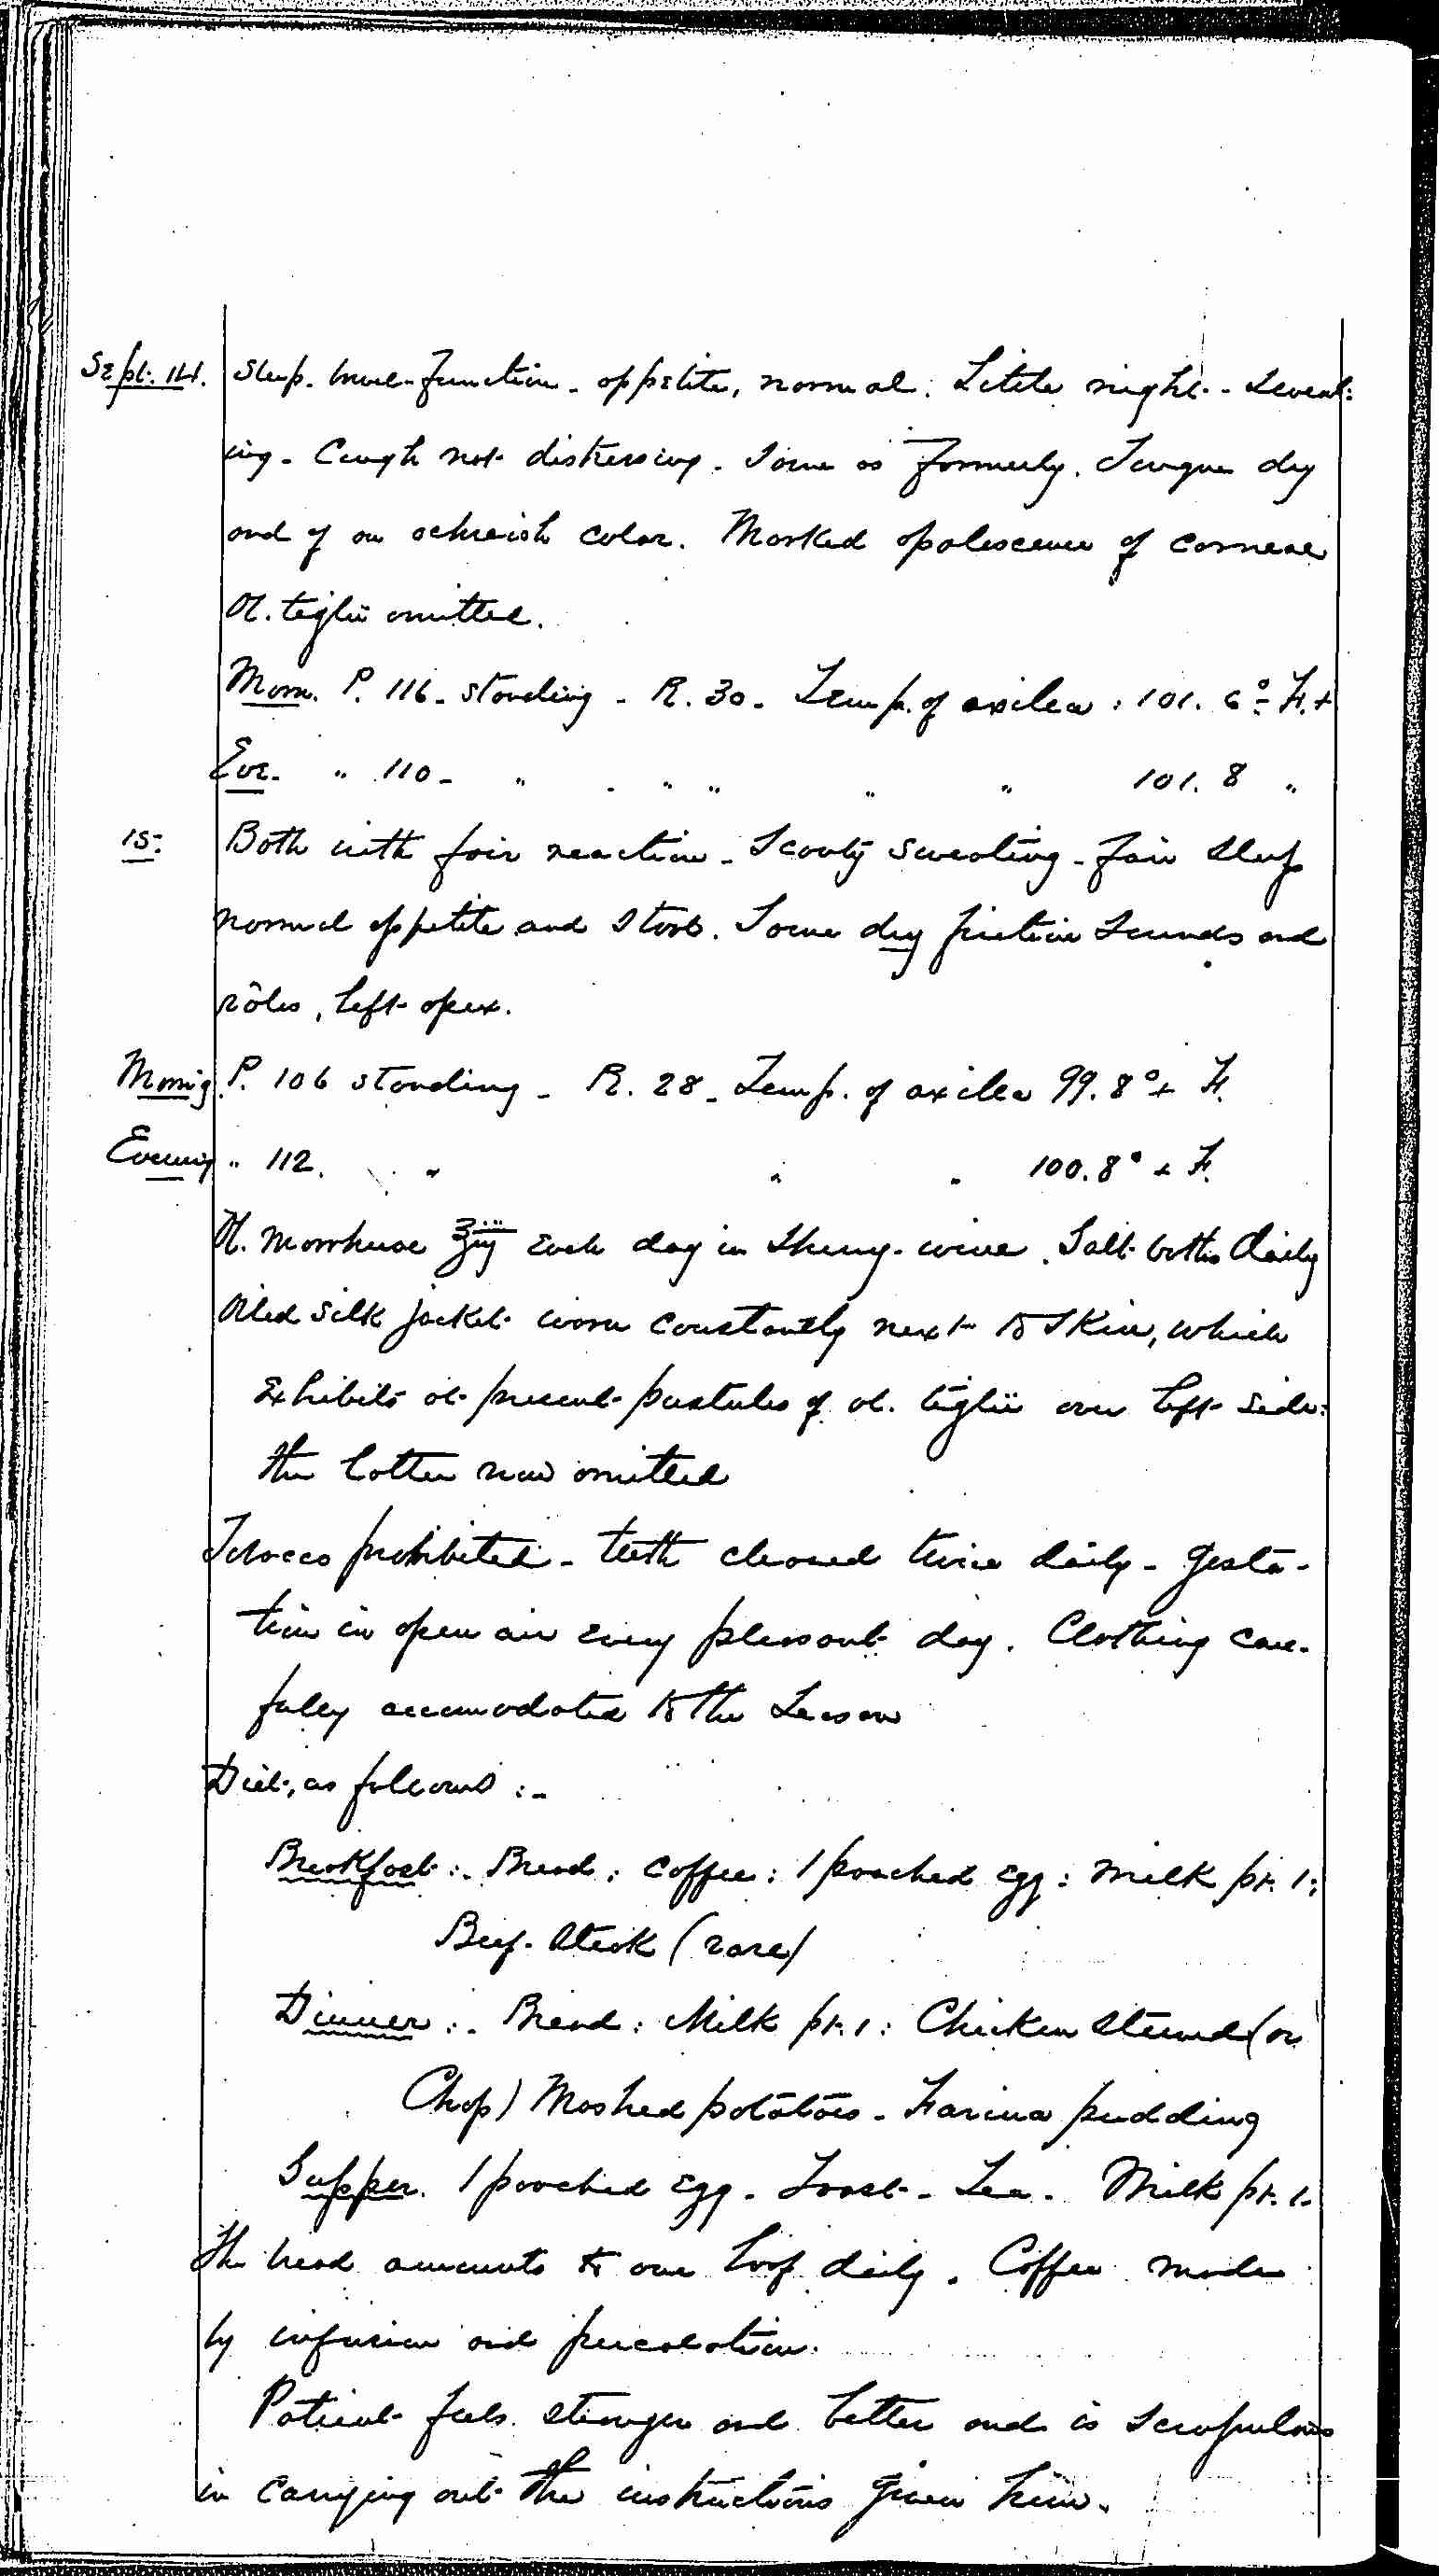 Sept. 14. Sleep. bowel-function - appetite, normal. Little night-sweat-
ing - Cough not distressing. Same as formerly. Tongue dry
and of an ochreish color. Marked opalescence of corneae
Ol. tiglii omitted.
Morn. P. 116 - standing - R. 30 - Temp. of axilla : 101. 6° F. +
Eve. " 110 - " " " " " 101. 8 "
15: Bath with fair reaction - Scanty sweating - fair sleep
normal appetite and stools. Some dry friction sounds and
râles, left apex.
Morni'g P. 106 standing - R. 28 - Temp. of axilla 99. 8° + F.
Evening " 112. " " " 100. 8° + F.
Ol. Morrhuae ʒiij each day in sherry-wine. Salt baths daily
Oiled silk jacket worn constantly next to skin, which
exhibits at present pustules of ol. tiglii over left side:
the latter now omitted
Tobacco prohibited - teeth cleaned twice daily - gesta-
tion in open air every pleasant day. Clothing care-
fully accomodated to the season
Diet, as follows :-
Breakfast :- Bread : coffee : 1 poached egg : milk pt. 1 :
Beef-steak (rare)
Dinner :- Bread : Milk pt. 1 : Chicken stewed (or
Chop) Mashed potatoes - Farina pudding
Supper. 1 poached egg - Toast - Tea - Milk pt. 1.
The bread amounts to one loaf daily. Coffee made
by infusion and percolation.
Patient feels stronger and better and is scrupulous
in carrying out the instructions given him.